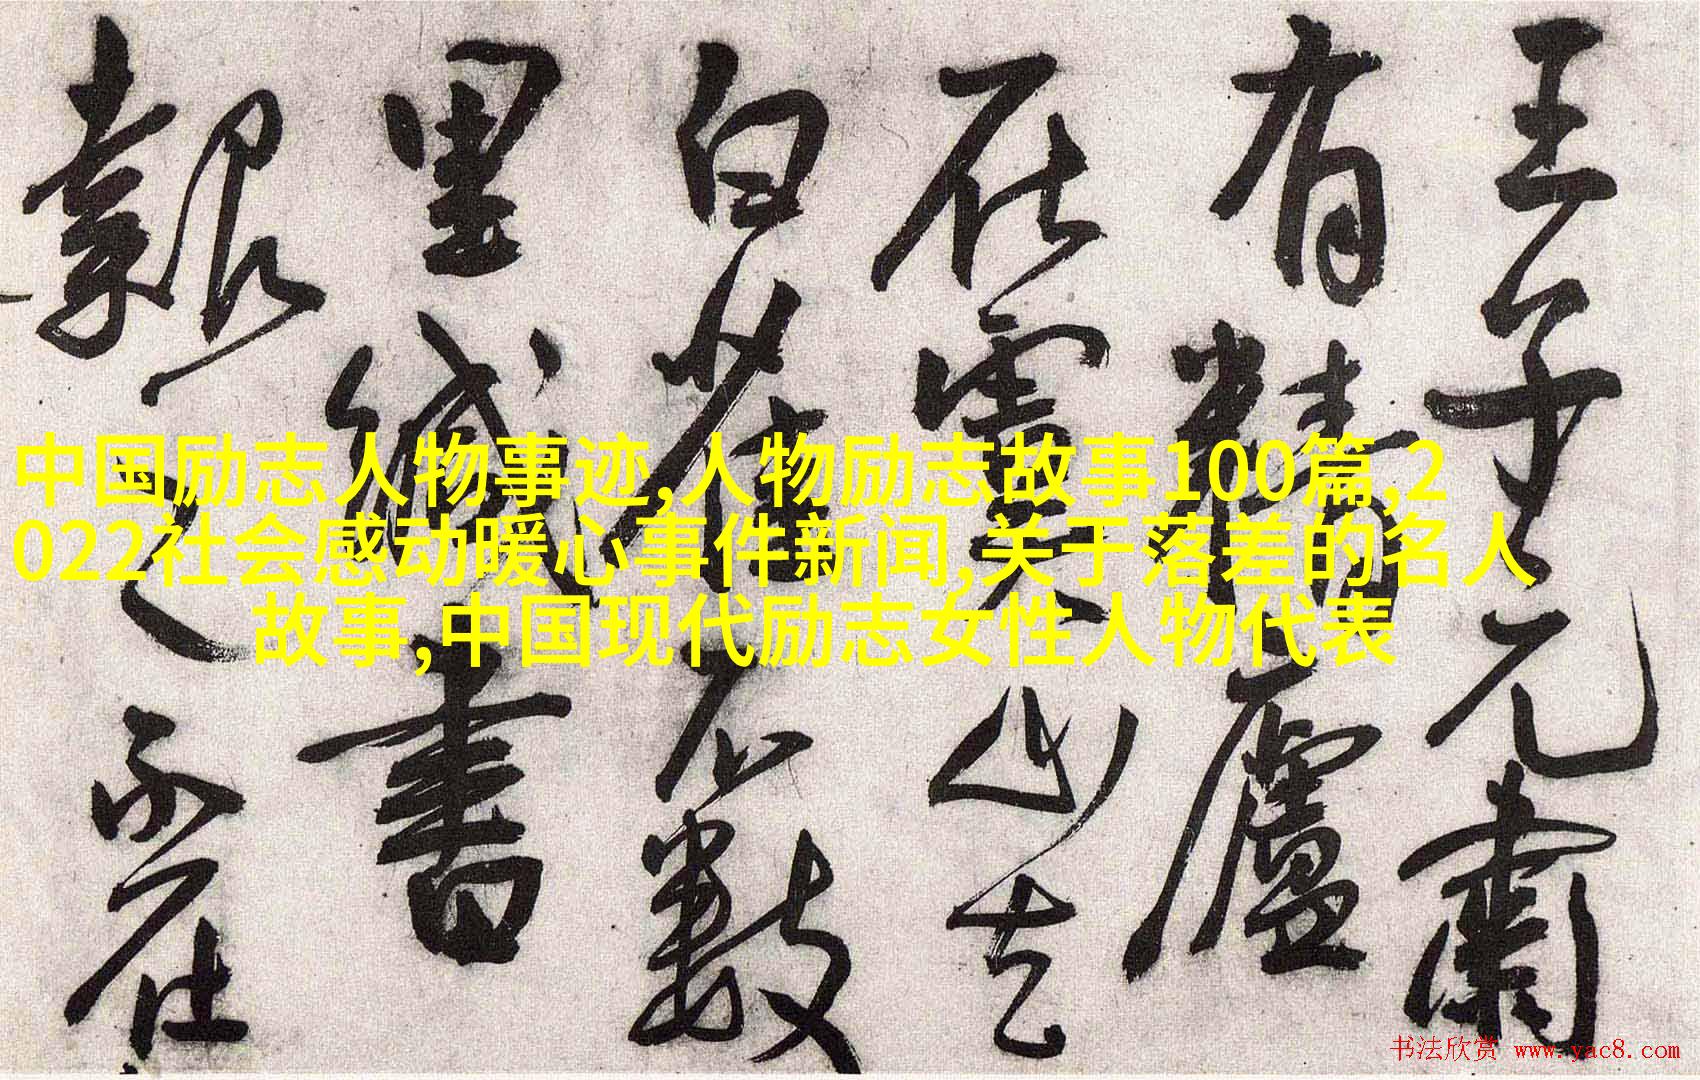 王子元肅
有精廬
在雲山去
白不數
里緘書
報之不在
中国励志人物事迹,人物励志故事100篇,2
022社会感动暖心事件新闻,关于落差的名人
故事,中国现代励志女性人物代表
书法欣赏 www.yac8.com